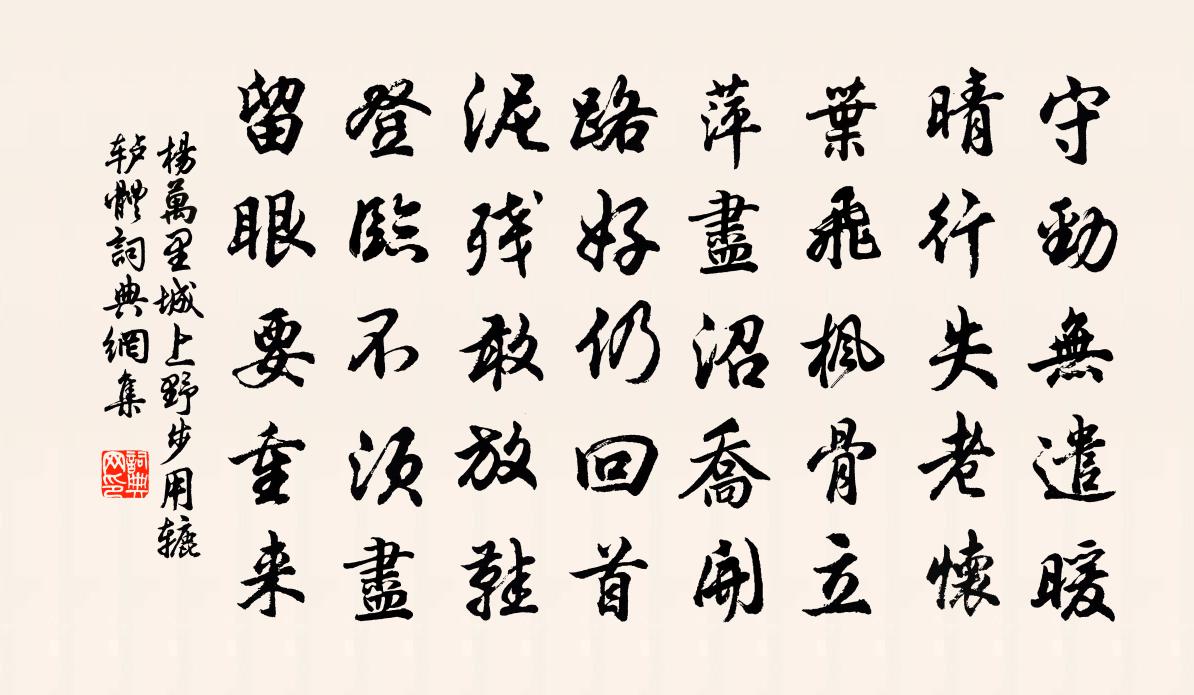 守勁無遣暖
晴行失老懷
葉飛楓骨立
萍盡沼奩開
路好仍回首
泥殘敢放鞋
登臨不須盡
留眼要重来
楊萬里城上野步用辘
轳體詞典網集
詞典
网印